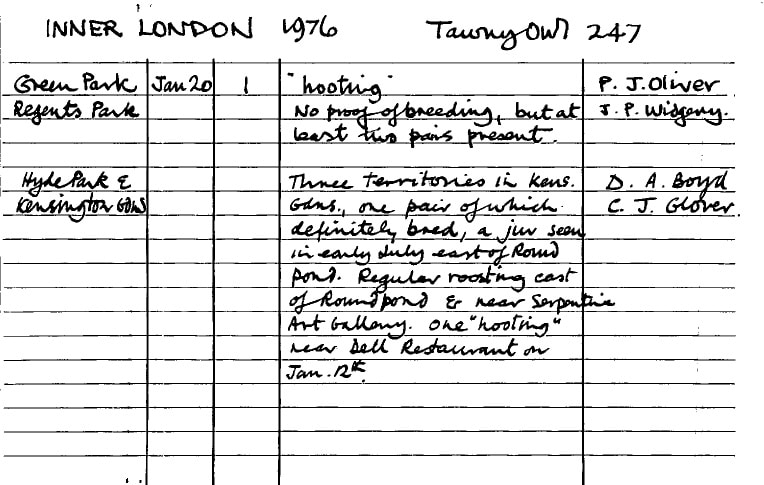 INNER LONDON 1976 Tawny Owl 247
Green Park Jan 20 1 "hooting" P. J. Oliver
Regents Park No proof of breeding, but at J. P. Widgery.
least two pairs present.
Hyde Park & Three territories in Kens. D. A. Boyd
Kensington Gdns Gdns., one pair of which C. J. Glover.
definitely bred, a juv seen
in early July east of Round
Pond. Regular roosting east
of Round pond & near Serpentine
Art Gallery. One "hooting"
near Dell Restaurant on
Jan. 12th.